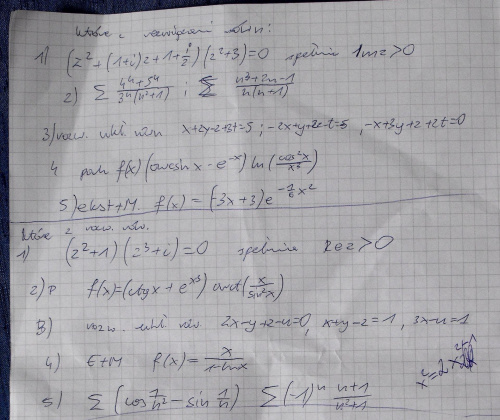 Które z rozwiązań równ:
1) (z² + (1+i)z + 1 + i/2)(z²+3)=0 spełnia Im z>0
2) ∑ (4ⁿ+5ⁿ)/(3ⁿ(n²+1)) ; ∑ (n³+2n-1)/(n(n+1))
3) rozw. ukł. równ x+2y-2+3t=5 ; -2x+y+2z-t=5, -x+3y+z+2t=0
4. poch f(x) (arcsin x - e⁻ˣ) ln (cos²x/x³)
5) ekst+M. f(x) = (-3x+3)e^(-1/6 x²)
Które z rozw. rów.
1) (z²+1)(z³+i)=0 spełnia Re z>0
2) P f(x)=(ctgx + e^(x³)) arct(x/sin²x)
3) rozw. ukł rów 2x-y+z-u=0, x+y-z=1, 3x-u=1
4) E+M f(x) = x/(1-lnx)
5) ∑ (cos 7/n² - sin 1/n) ∑ (-1)ⁿ (n+1)/(n²+1)